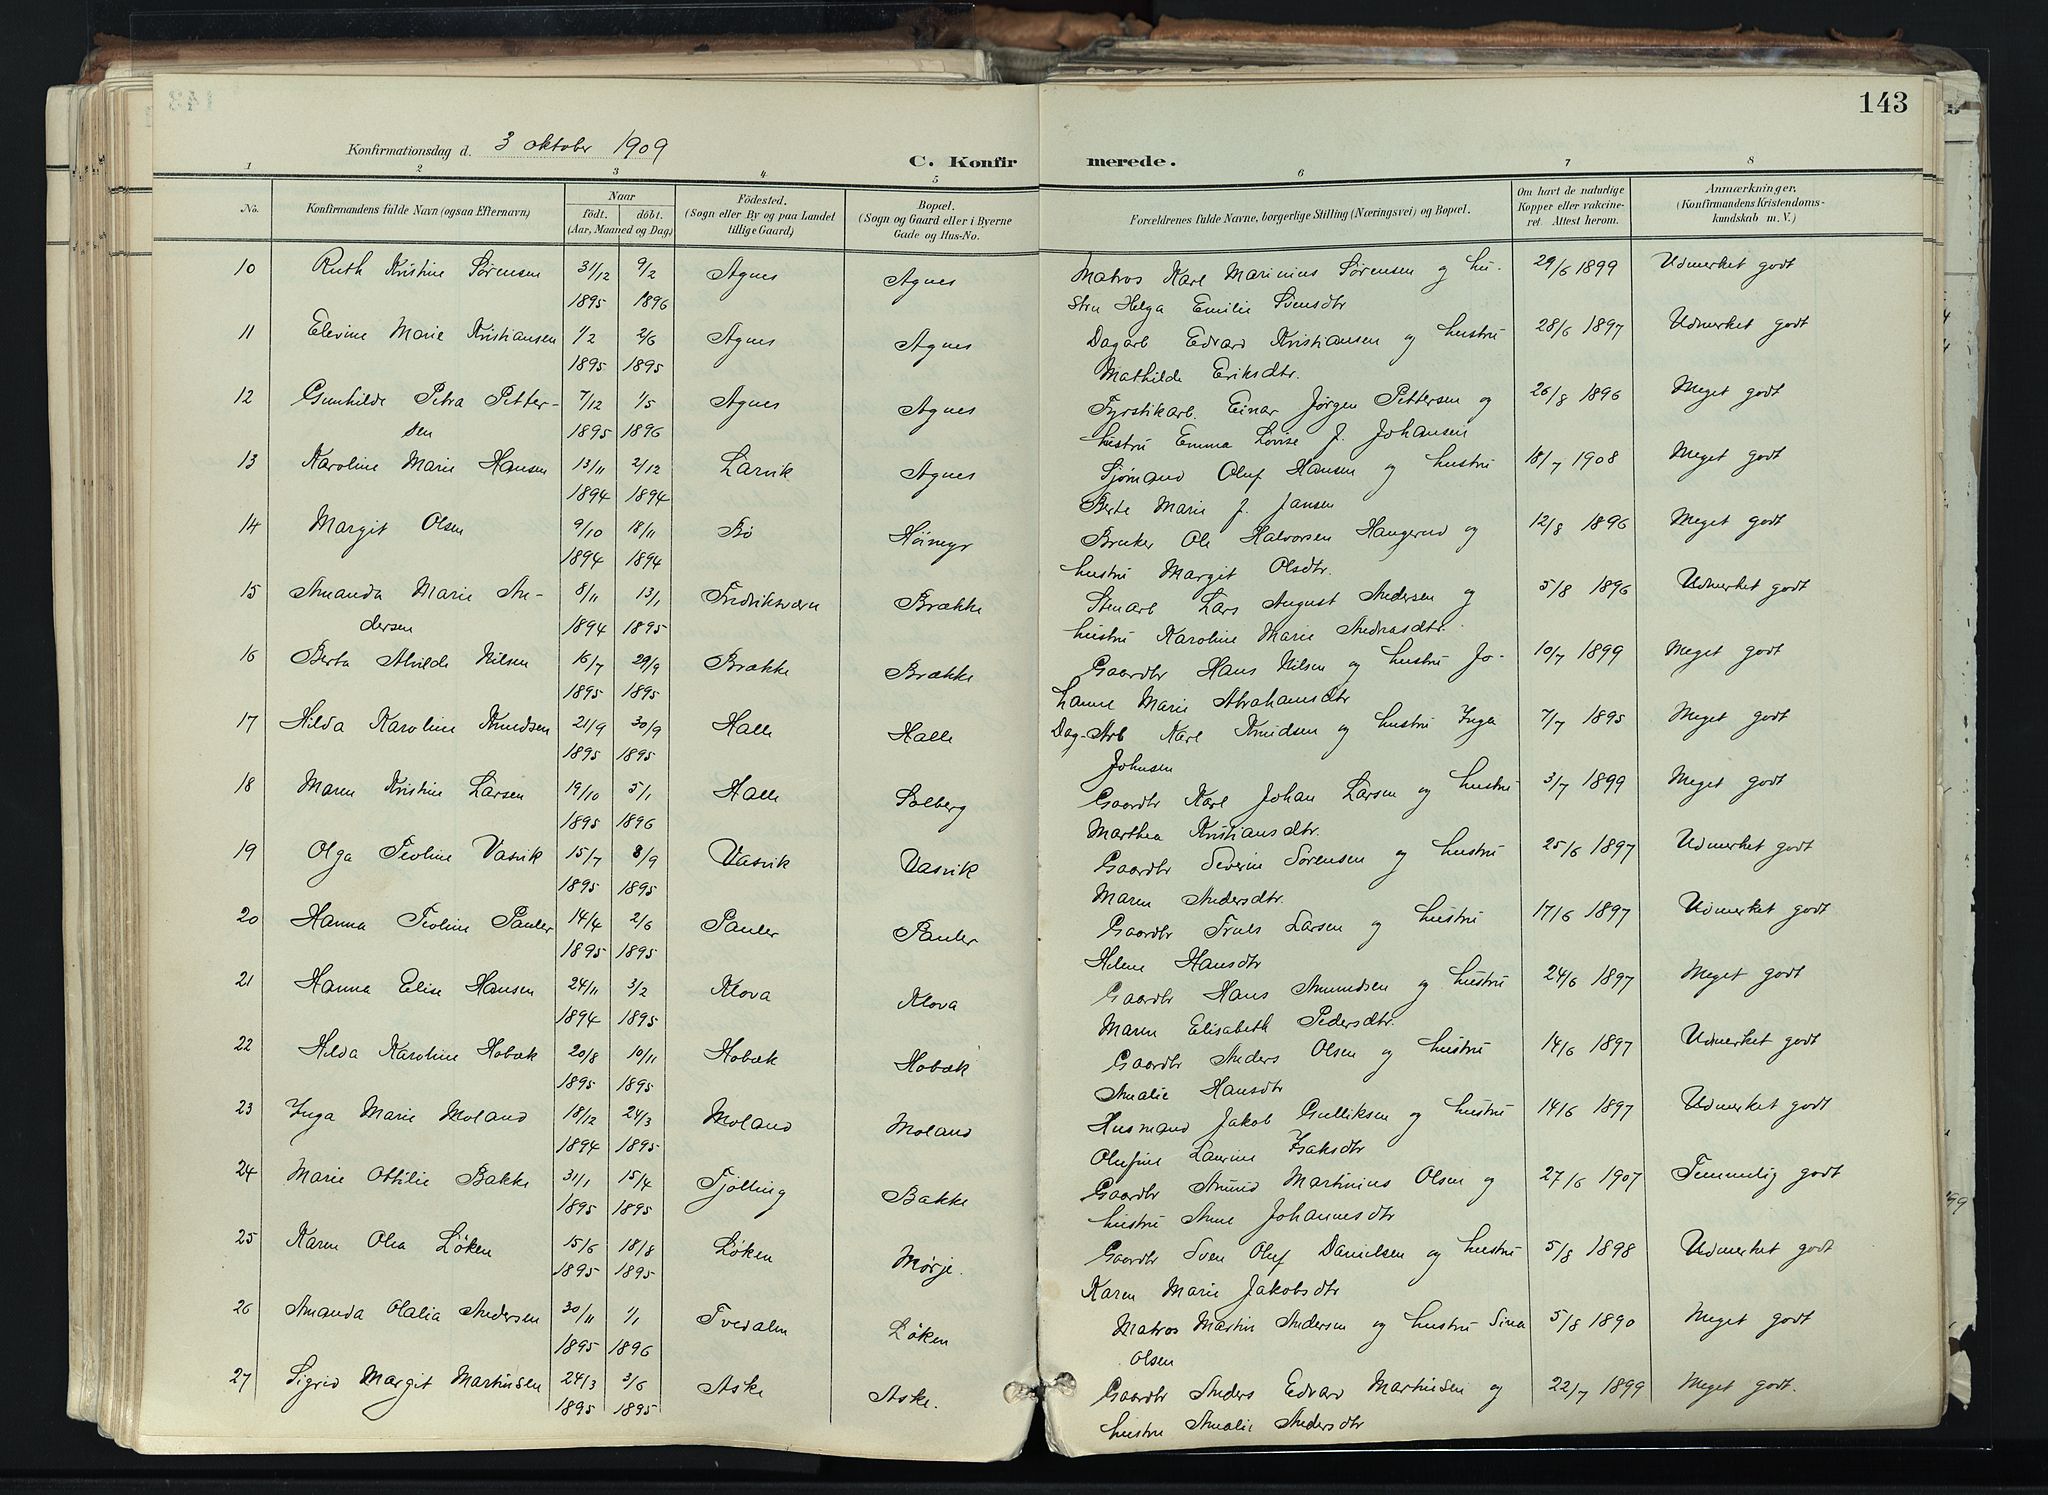 143
Konfirmationsdag d. 3 oktober 1909
C. Konfirmerede.
1 2 3 4 5 6 7 8
No. Konfirmandens fulde Navn (ogsaa Efternavn) Naar födt. döbt. (Aar, Maaned og Dag) Födested. (Sogn eller By og paa Landet tillige Gaard) Bopæl. (Sogn og Gaard eller i Byerne Gade og Hus-No. Forældrenes fulde Navne, borgerlige Stilling (Næringsvei) og Bopæl. Om havt de naturlige Kopper eller vakcineret. Attest herom. Anmærkninger, (Konfirmandens Kristendomskundskab m. V.)
10 Ruth Kristine Sørensen 31/12 9/2 Agnes Agnes Matros Karl Marinius Sørensen og hu- 29/6 1899 Udmerket godt
1895 1896 stru Helga Emilie Svensdtr
11 Elevine Marie Kristiansen 1/2 2/6 Agnes Agnes Dagarb Edvard Kristiansen og hustru 28/6 1897 Udmerket godt
1895 1895 Mathilde Eriksdtr.
12 Gunhilde Petra Petter- 7/12 1/5 Agnes Agnes Fyrstikarb. Einar Jørgen Pettersen og 26/8 1896 Meget godt
sen 1895 1896 hustru Emma Lovise J. Johansen
13 Karoline Marie Hansen 13/11 2/12 Larvik Agnes Sjømand Oluf Hansen og hustru 18/7 1908 Meget godt
1894 1894 Berte Marie J. Jansen
14 Margit Olsen 9/10 18/11 Bø Høimyr Bruker Ole Halvorsen Haugerud og 12/8 1896 Meget godt
1894 1894 hustru Margit Olsdtr.
15 Amanda Marie An- 8/11 13/1 Fredriksværn Brække Stenarb Lars August Andersen og 5/8 1896 Udmerket godt
dersen 1894 1895 hustru Karoline Marie Andreasdtr.
16 Berta Alvilde Nilsen 16/7 29/9 Brække Brække Gaardbr Hans Nilsen og hustru Jo- 10/7 1899 Meget godt
1895 1895 hanne Marie Abrahamsdtr
17 Hilda Karoline Knudsen 21/9 30/9 Halle Halle Dag-Arb Karl Knudsen og hustru Inga 7/7 1895 Meget godt
1895 1895 Johnsen
18 Maren Kristine Larsen 19/10 5/1 Halle Solberg Gaardbr Karl Johan Larsen og hustru 3/7 1899 Meget godt
1895 1896 Marthea Kristiansdtr.
19 Olga Teoline Vasvik 15/7 8/9 Vasvik Vasvik Gaardbr Severin Sørensen og hustru 25/6 1897 Udmerket godt
1895 1895 Maren Andersdtr.
20 Hanna Teoline Pauler 14/4 2/6 Pauler Pauler Gaardbr Truls Larsen og hustru 17/6 1897 Udmerket godt
1895 1895 Helene Hansdtr
21 Hanna Elise Hansen 24/11 3/2 Klova Klova Gaardbr Hans Amundsen og hustru 24/6 1897 Meget godt
1894 1895 Maren Elisabeth Pedersdtr.
22 Hilda Karoline Hobæk 20/8 10/11 Hobæk Hobæk Gaardbr Anders Olsen og hustru 14/6 1897 Udmerket godt
1895 1895 Amalie Hansdtr
23 Inga Marie Moland 18/12 24/3 Moland Moland Husmand Jakob Gulliksen og hustru 14/6 1897 Udmerket godt
1894 1895 Olufine Laurine Isaksdtr
24 Marie Ottilie Bakke 31/1 15/4 Tjølling Bakke Gaardbr Amund Martinius Olsen og 27/6 1907 Temmelig godt
1895 1895 hustru Anne Johannesdtr
25 Karen Olea Løken 15/6 18/8 Løken Mørje. Gaardbr Sven Oluf Danielsen og hustru 5/8 1898 Udmerket godt
1895 1895 Karen Marie Jakobsdtr
26 Amanda Olalia Andersen 30/11 1/1 Tvedalen Løken Matros Martin Andersen og hustru Sina 5/8 1890 Meget godt
1895 1896 Olsen
27 Sigrid Margit Martinsen 24/3 3/6 Aske Aske. Gaardbr Anders Edvard Martinsen og 22/7 1899 Meget godt.
1895 1895 hustru Amalie Andersdtr